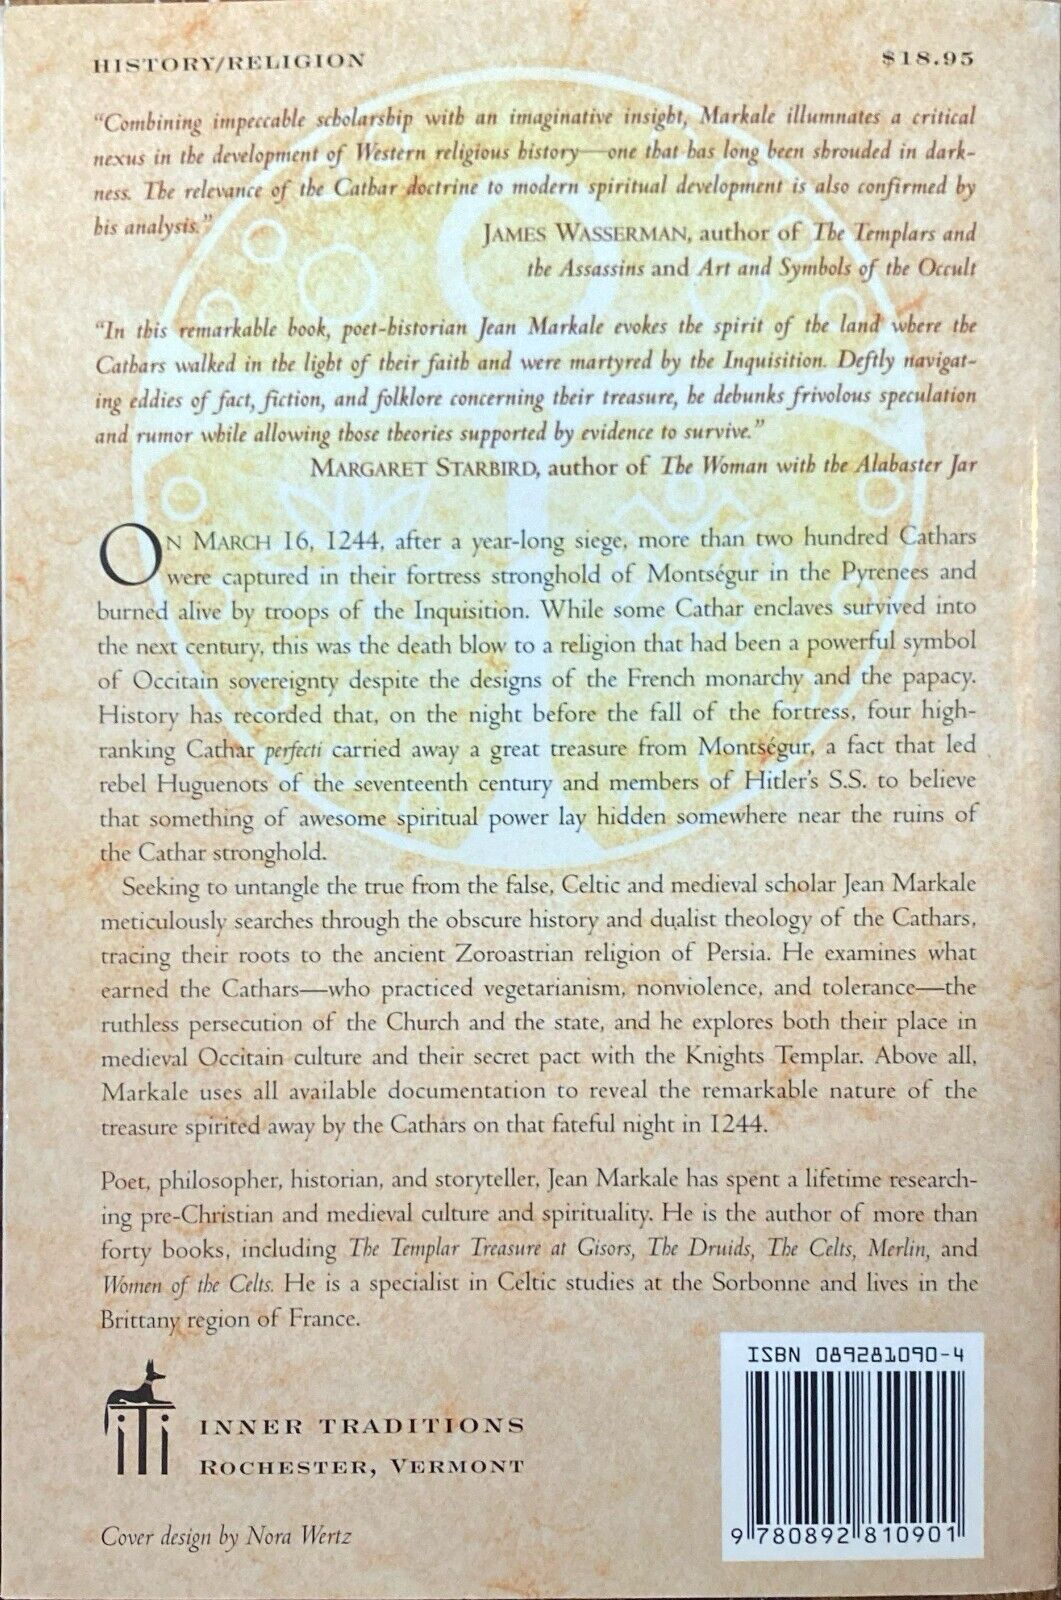 HISTORY/RELIGION
$18.95
"Combining impeccable scholarship with an imaginative insight, Markale illumnates a critical
nexus in the development of Western religious history—one that has long been shrouded in dark-
ness. The relevance of the Cathar doctrine to modern spiritual development is also confirmed by
his analysis."
JAMES WASSERMAN, author of The Templars and
the Assassins and Art and Symbols of the Occult
"In this remarkable book, poet-historian Jean Markale evokes the spirit of the land where the
Cathars walked in the light of their faith and were martyred by the Inquisition. Deftly navigat-
ing eddies of fact, fiction, and folklore concerning their treasure, he debunks frivolous speculation
and rumor while allowing those theories supported by evidence to survive."
MARGARET STARBIRD, author of The Woman with the Alabaster Jar
ON MARCH 16, 1244, after a year-long siege, more than two hundred Cathars
were captured in their fortress stronghold of Montségur in the Pyrenees and
burned alive by troops of the Inquisition. While some Cathar enclaves survived into
the next century, this was the death blow to a religion that had been a powerful symbol
of Occitain sovereignty despite the designs of the French monarchy and the papacy.
History has recorded that, on the night before the fall of the fortress, four high-
ranking Cathar perfecti carried away a great treasure from Montségur, a fact that led
rebel Huguenots of the seventeenth century and members of Hitler's S.S. to believe
that something of awesome spiritual power lay hidden somewhere near the ruins of
the Cathar stronghold.
Seeking to untangle the true from the false, Celtic and medieval scholar Jean Markale
meticulously searches through the obscure history and dualist theology of the Cathars,
tracing their roots to the ancient Zoroastrian religion of Persia. He examines what
earned the Cathars—who practiced vegetarianism, nonviolence, and tolerance—the
ruthless persecution of the Church and the state, and he explores both their place in
medieval Occitain culture and their secret pact with the Knights Templar. Above all,
Markale uses all available documentation to reveal the remarkable nature of the
treasure spirited away by the Cathars on that fateful night in 1244.
Poet, philosopher, historian, and storyteller, Jean Markale has spent a lifetime research-
ing pre-Christian and medieval culture and spirituality. He is the author of more than
forty books, including The Templar Treasure at Gisors, The Druids, The Celts, Merlin, and
Women of the Celts. He is a specialist in Celtic studies at the Sorbonne and lives in the
Brittany region of France.
ISBN 089281090-4
iTi
INNER TRADITIONS
ROCHESTER, VERMONT
Cover design by Nora Wertz
9 780892 810901